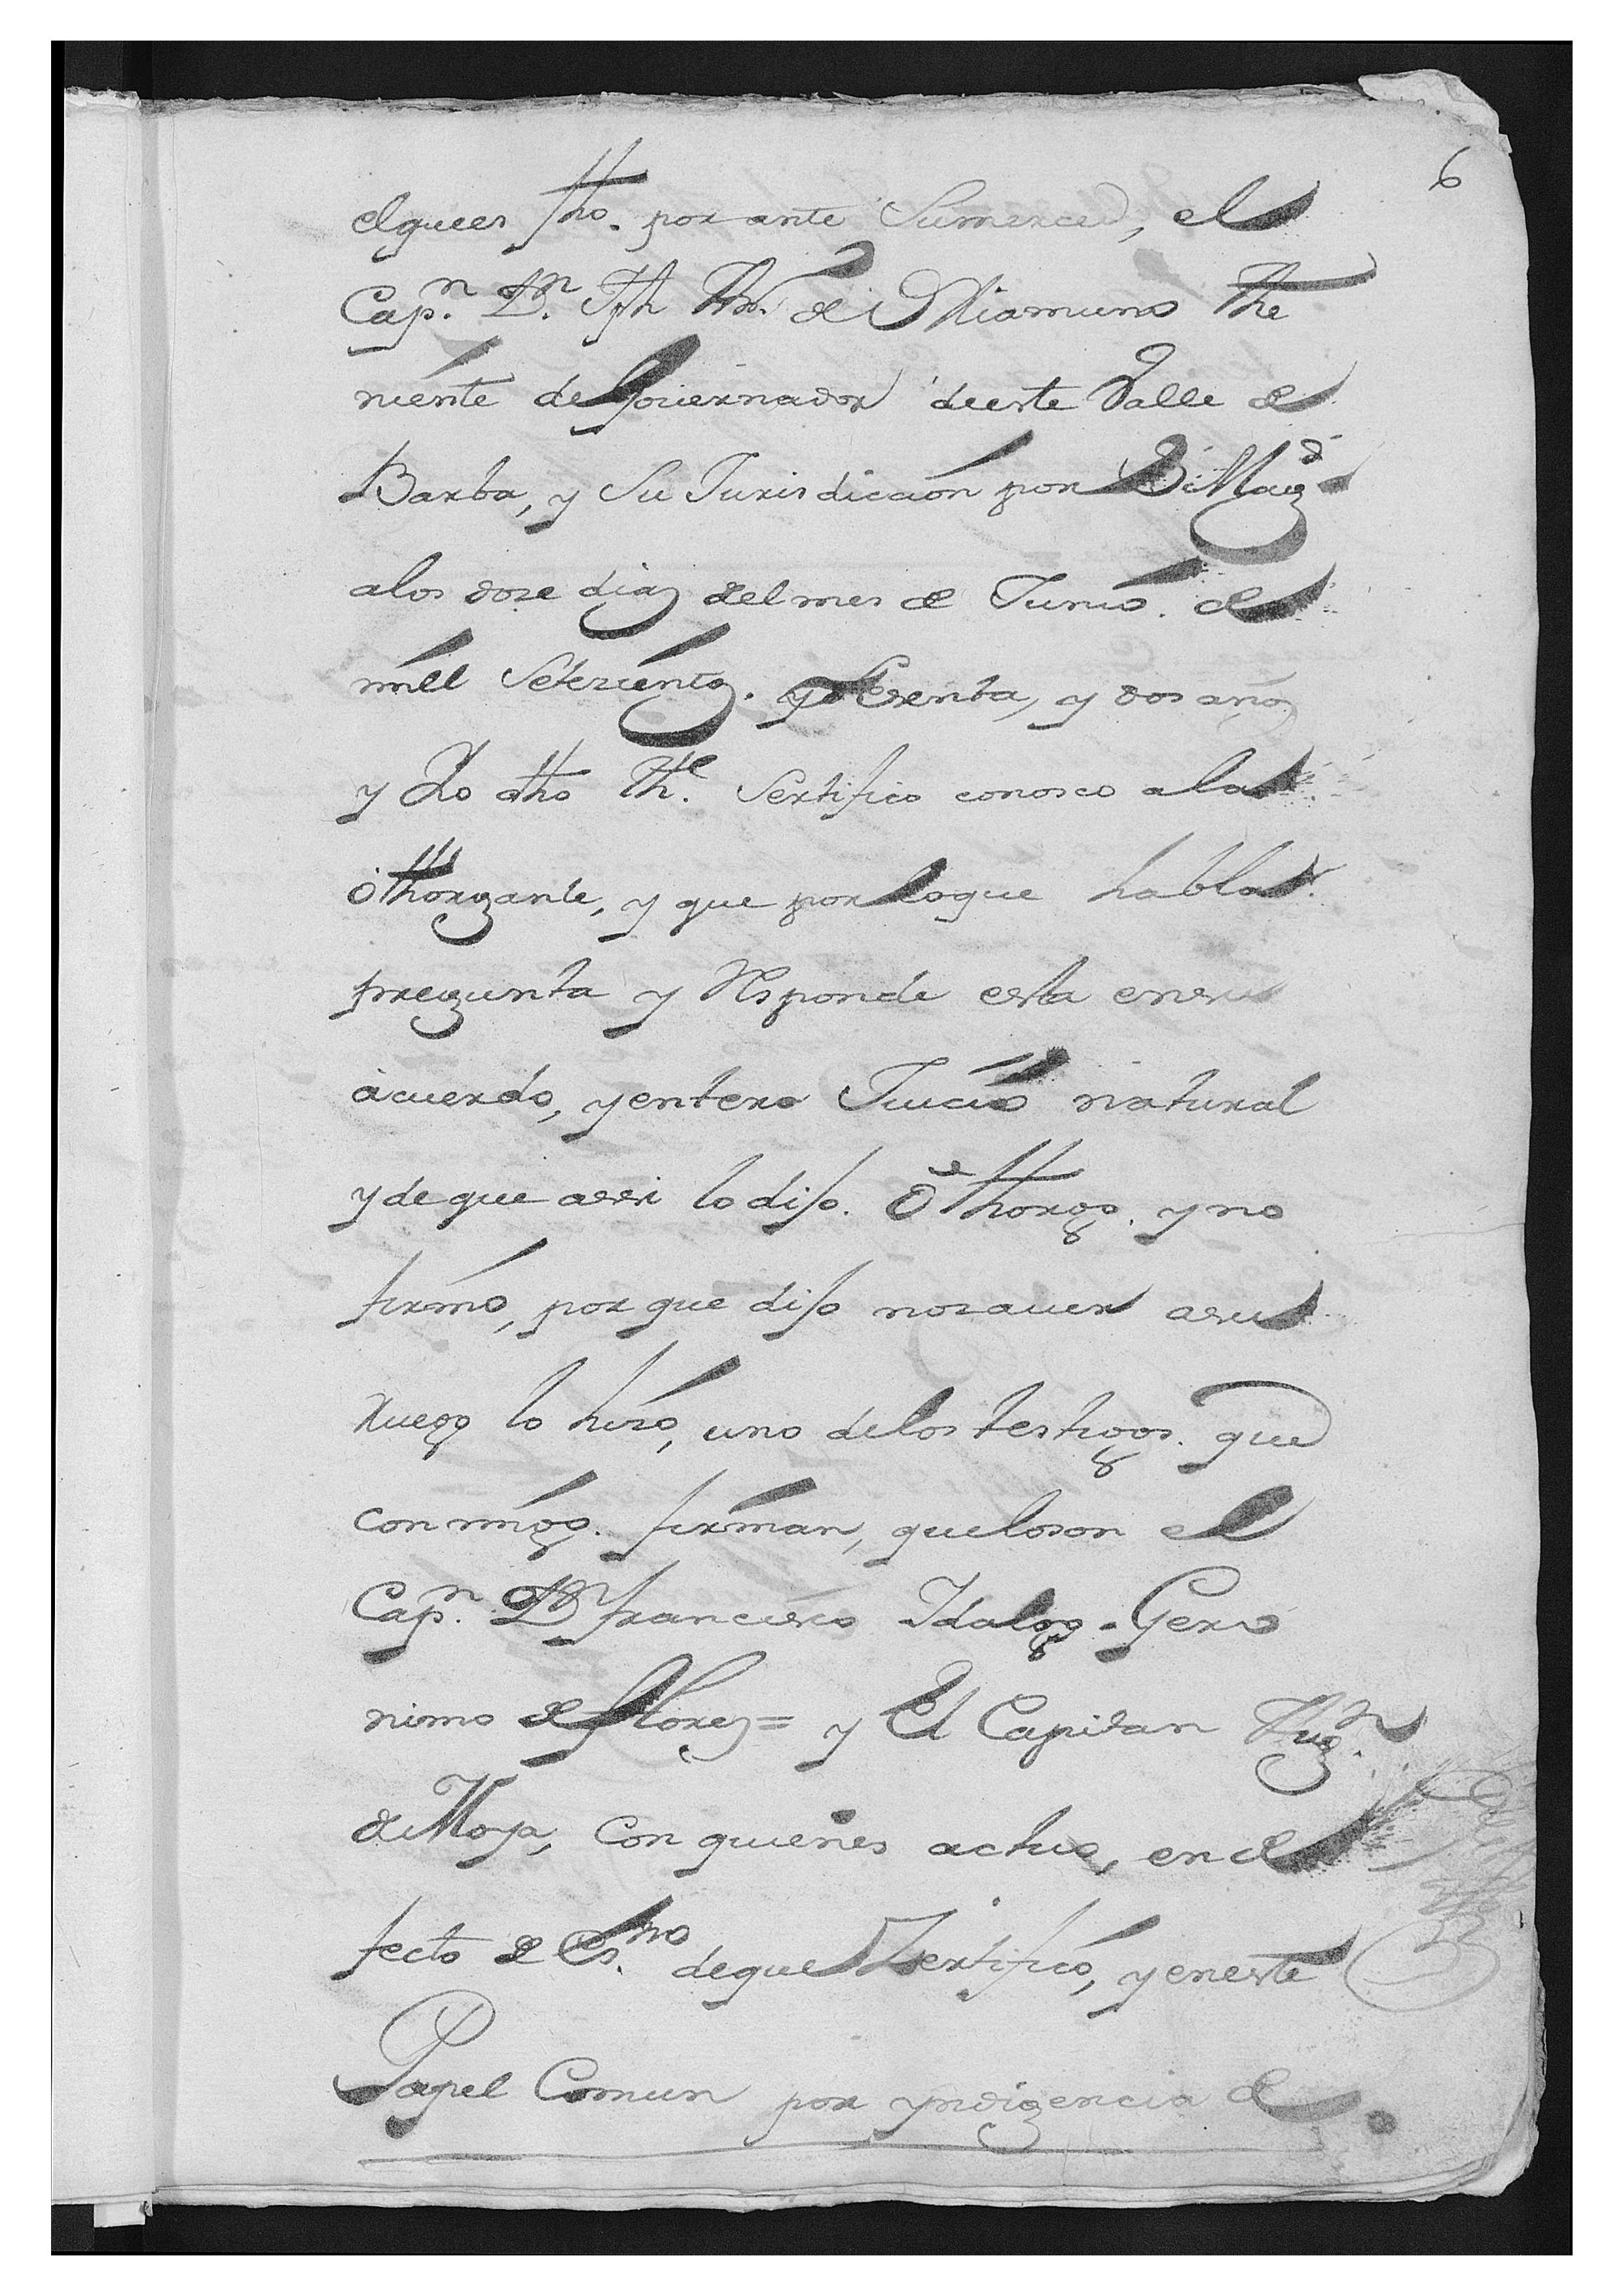 6
elquees fho. por ante Sumerced, el
Capn. Dn. Jph Anto. de Miamuno The
niente de Governador deeste Valle de
Barba, y Su Jurisdiccion por S. Magd
alos dose dias del mes de Junio. de
mill Setezientos. y Sesenta, y dos años
y Yo dho The. Sertifico conosco ala
othorgante, y que por loque habla
pregunta y Responde esta ensu
acuerdo, y entero Juicio natural
y de que assi lo dijo. othorgo. y no
firmo, por que dijo nosaver asu
Ruego lo hizo, uno delos testigos. que
con migo. firman, queloson el
Capn. Dn francisco Idalgo - Gero
nimo de flores = y El Capitan
de Moya, Con quienes actuo, en de
fecto de Esno. deque Zertifico, y eneste
Papel Comun por yndigencia de